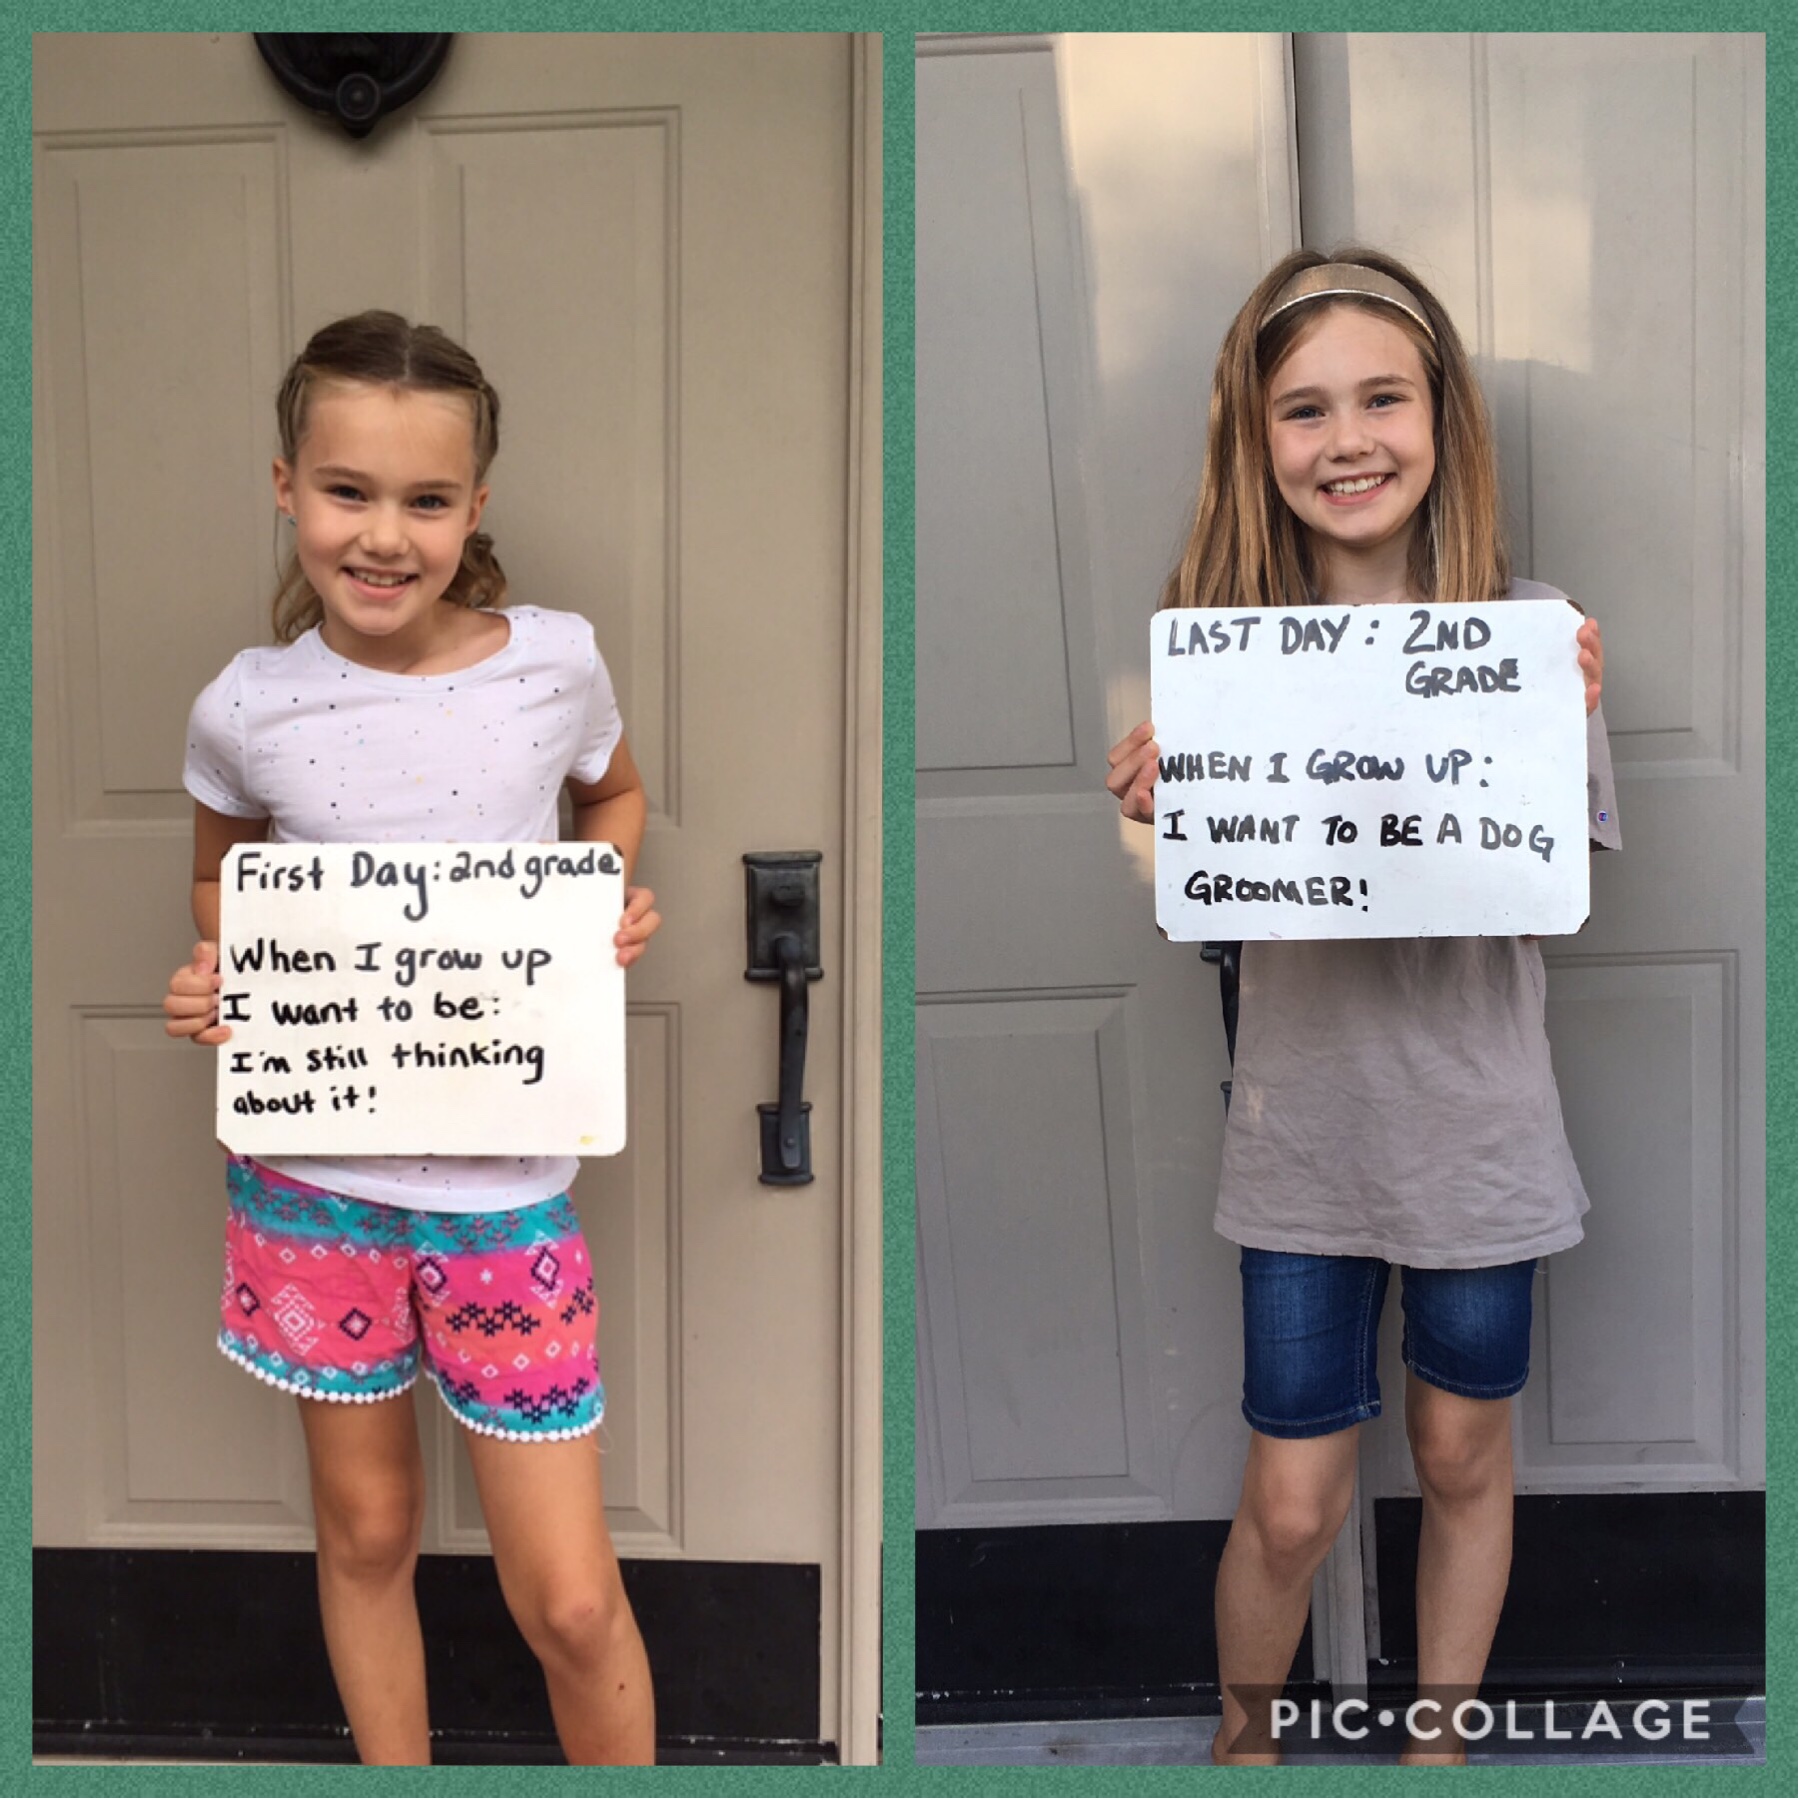 First Day: 2nd grade
When I grow up
I want to be:
I'm still thinking
about it!
LAST DAY: 2ND
GRADE
WHEN I GROW UP:
I WANT TO BE A DOG
GROOMER!
PIC•COLLAGE